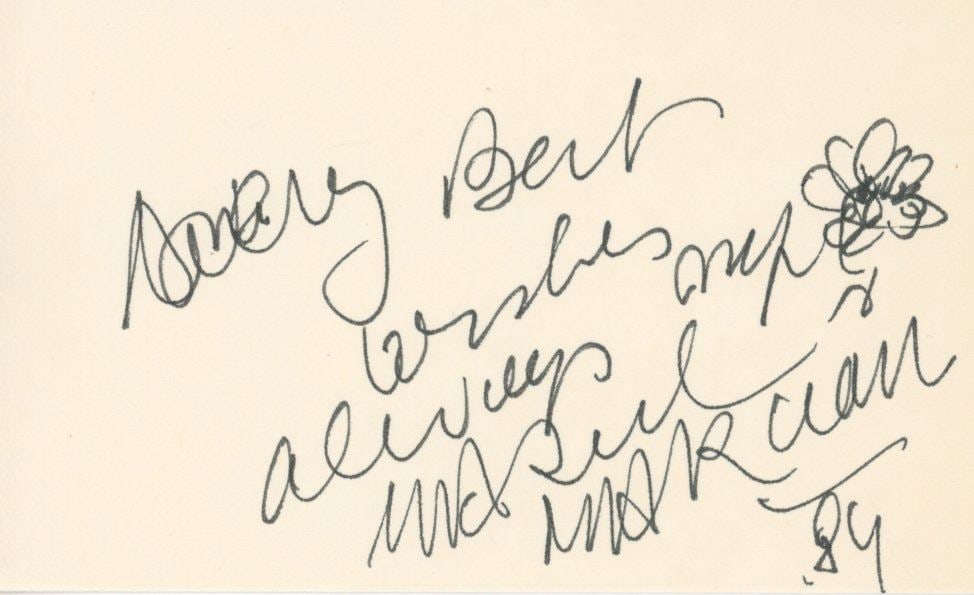 Best
wishes
always
MARcel
MARCEAU
84